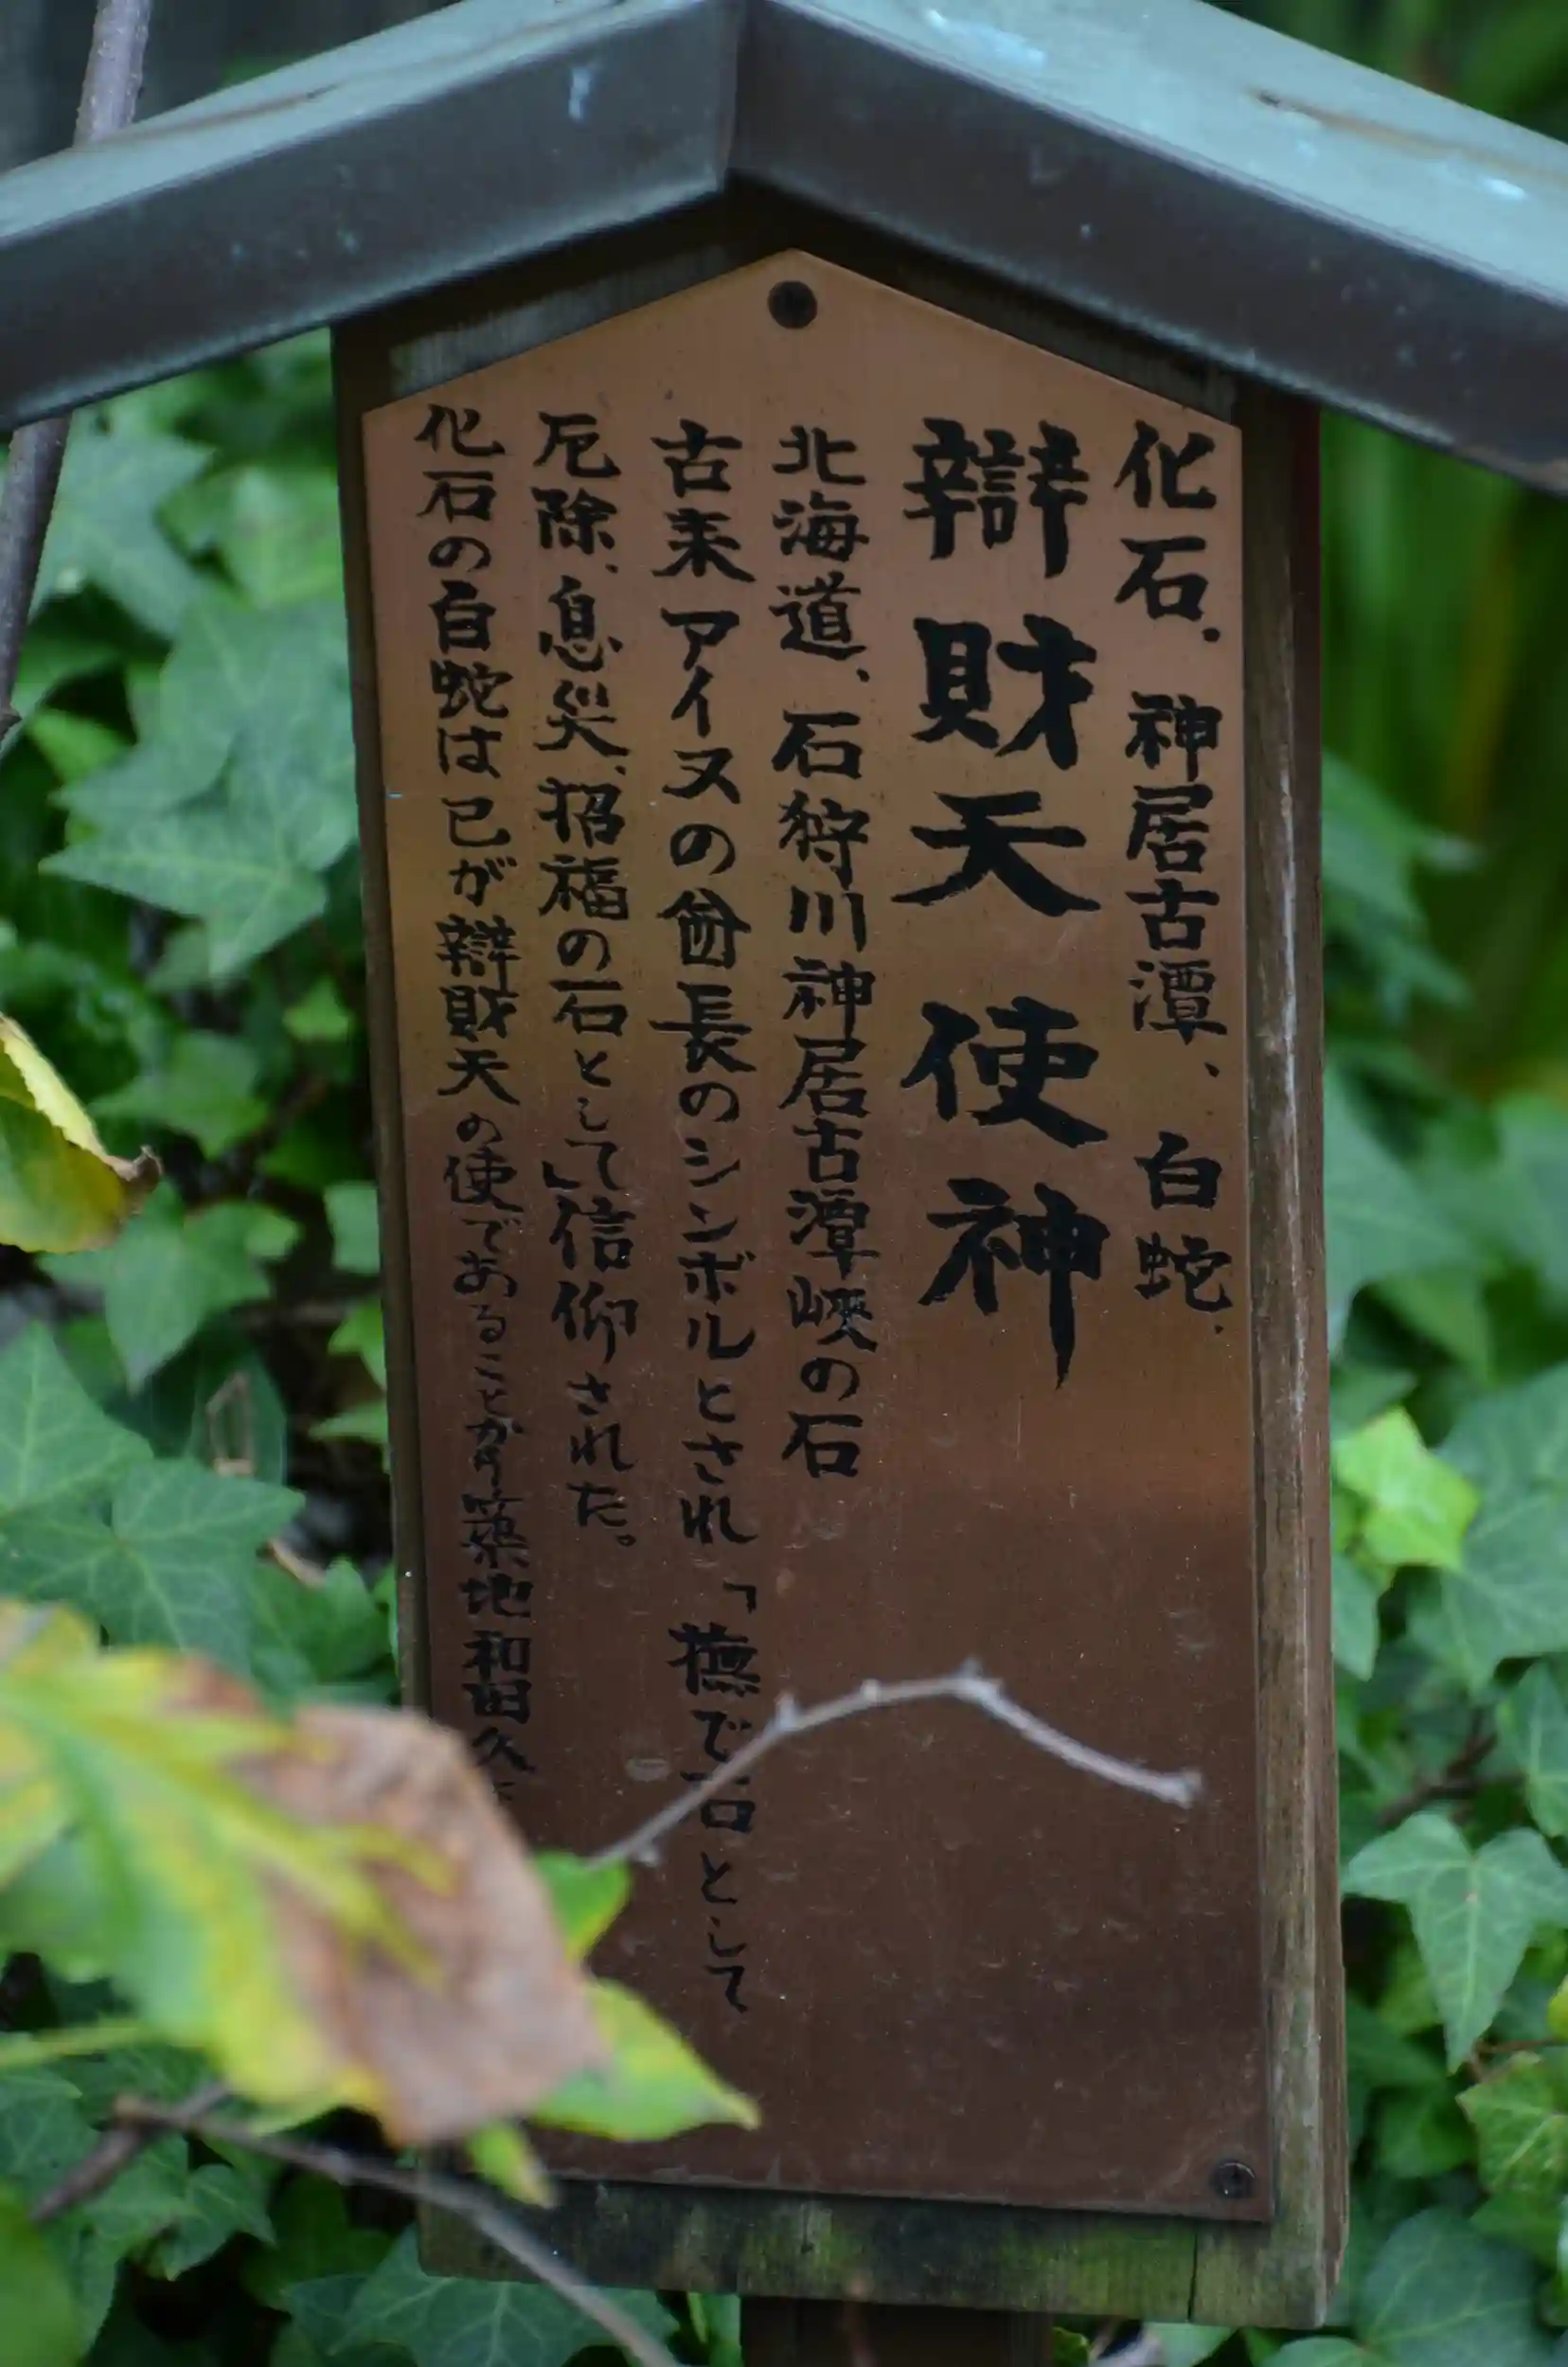 化石、神居古潭、白蛇、
辯財天使神
北海道、石狩川神居古潭峡の石
古来アイヌの酋長のシンボルとされ「撫で石として
厄除、息災、招福の石として」信仰された。
化石の白蛇は已が辯財天の使であることから築地和田久